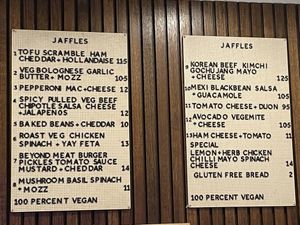 JAFFLES
1 TOFU SCRAMBLE HAM
CHEDDAR + HOLLANDAISE 115
2 VEG BOLOGNESE GARLIC
BUTTER + MOZZ 105
3 PEPPERONI MAC + CHEESE 12
4 SPICY PULLED VEG BEEF
CHIPOTLE SALSA CHEESE
+ JALAPENOS 12
5 BAKED BEANS + CHEDDAR 10
6 ROAST VEG CHICKEN
SPINACH + YAY FETA 13
7 BEYOND MEAT BURGER
PICKLES TOMATO SAUCE
MUSTARD + CHEDDAR 14
8 MUSHROOM BASIL SPINACH
+ MOZZ 11
100 PERCENT VEGAN
JAFFLES
9 KOREAN BEEF KIMCHI
GOCHUJANG MAYO
+ CHEESE 125
10 MEXI BLACKBEAN SALSA
+ GUACAMOLE 105
11 TOMATO CHEESE + DIJON 95
12 AVOCADO VEGEMITE
+ CHEESE 105
13 HAM CHEESE + TOMATO 11
SPECIAL
LEMON + HERB CHICKEN
CHILLI MAYO SPINACH
CHEESE 14
GLUTEN FREE BREAD 2
100 PERCENT VEGAN